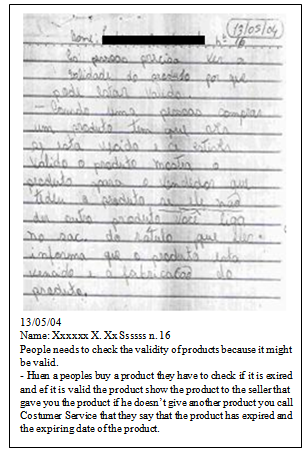 13/05/04
Nome: nº 16
pessoas precisa ver a
validade do produto por que
pode estar valido.
- Quando uma pessoa comprar
um produto tem que
esta e
valido o produto mostra o
produto para o vendedor que
tideu o produto se ele não
deu outro produto você liga
no sac. do que
informa que o produto esta
vencido e a fabricação do
produto.
13/05/04
Name: Xxxxxx X. Xx Ssssss n. 16
People needs to check the validity of products because it might
be valid.
- Huen a peoples buy a product they have to check if it is exired
and ef it is valid the product show the product to the seller that
gave you the product if he doesn't give another product you call
Costumer Service that they say that the product has expired and
the expiring date of the product.